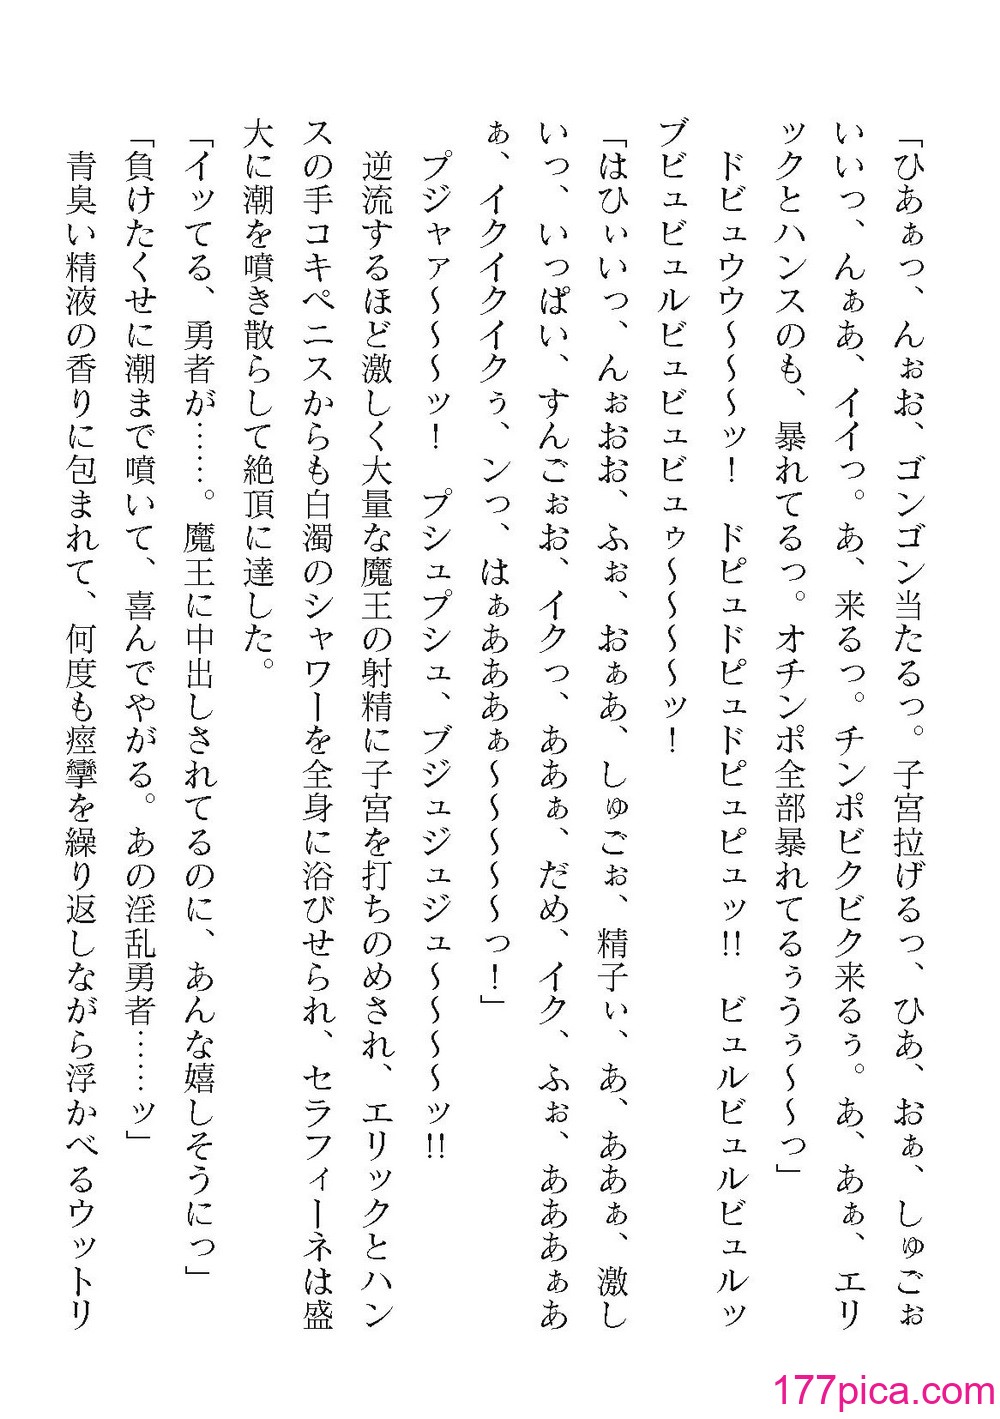 「ひあぁっ、んぉお、ゴンゴン当たるっ。子宮拉げるっ、ひあ、おぁ、しゅごぉ
いいっ、んぁあ、イイっ。あ、来るっ。チンポビクビク来るぅ。あ、あぁ、エリ
ックとハンスのも、暴れてるっ。オチンポ全部暴れてるぅうぅ～～っ」
ドビュウウ～～～ッ！　ドピュドピュドピュピュッ!!　ビュルビュルビュルッ
ブビュビュルビュビュビュゥ～～～～ッ！
「はひぃいっ、んぉおお、ふぉ、おぁあ、しゅごぉ、精子ぃ、あ、ああぁ、激し
いっ、いっぱい、すんごぉお、イクっ、ああぁ、だめ、イク、ふぉ、あああぁあ
ぁ、イクイクイクぅ、ンっ、はぁあああぁ～～～～～っ！」
プジャァ～～～ッ！　プシュプシュ、ブジュジュジュ～～～～ッ!!
逆流するほど激しく大量な魔王の射精に子宮を打ちのめされ、エリックとハン
スの手コキペニスからも白濁のシャワーを全身に浴びせられ、セラフィーネは盛
大に潮を噴き散らして絶頂に達した。
「イッてる、勇者が……。魔王に中出しされてるのに、あんな嬉しそうにっ」
「負けたくせに潮まで噴いて、喜んでやがる。あの淫乱勇者……ッ」
青臭い精液の香りに包まれて、何度も痙攣を繰り返しながら浮かべるウットリ
177pica.com